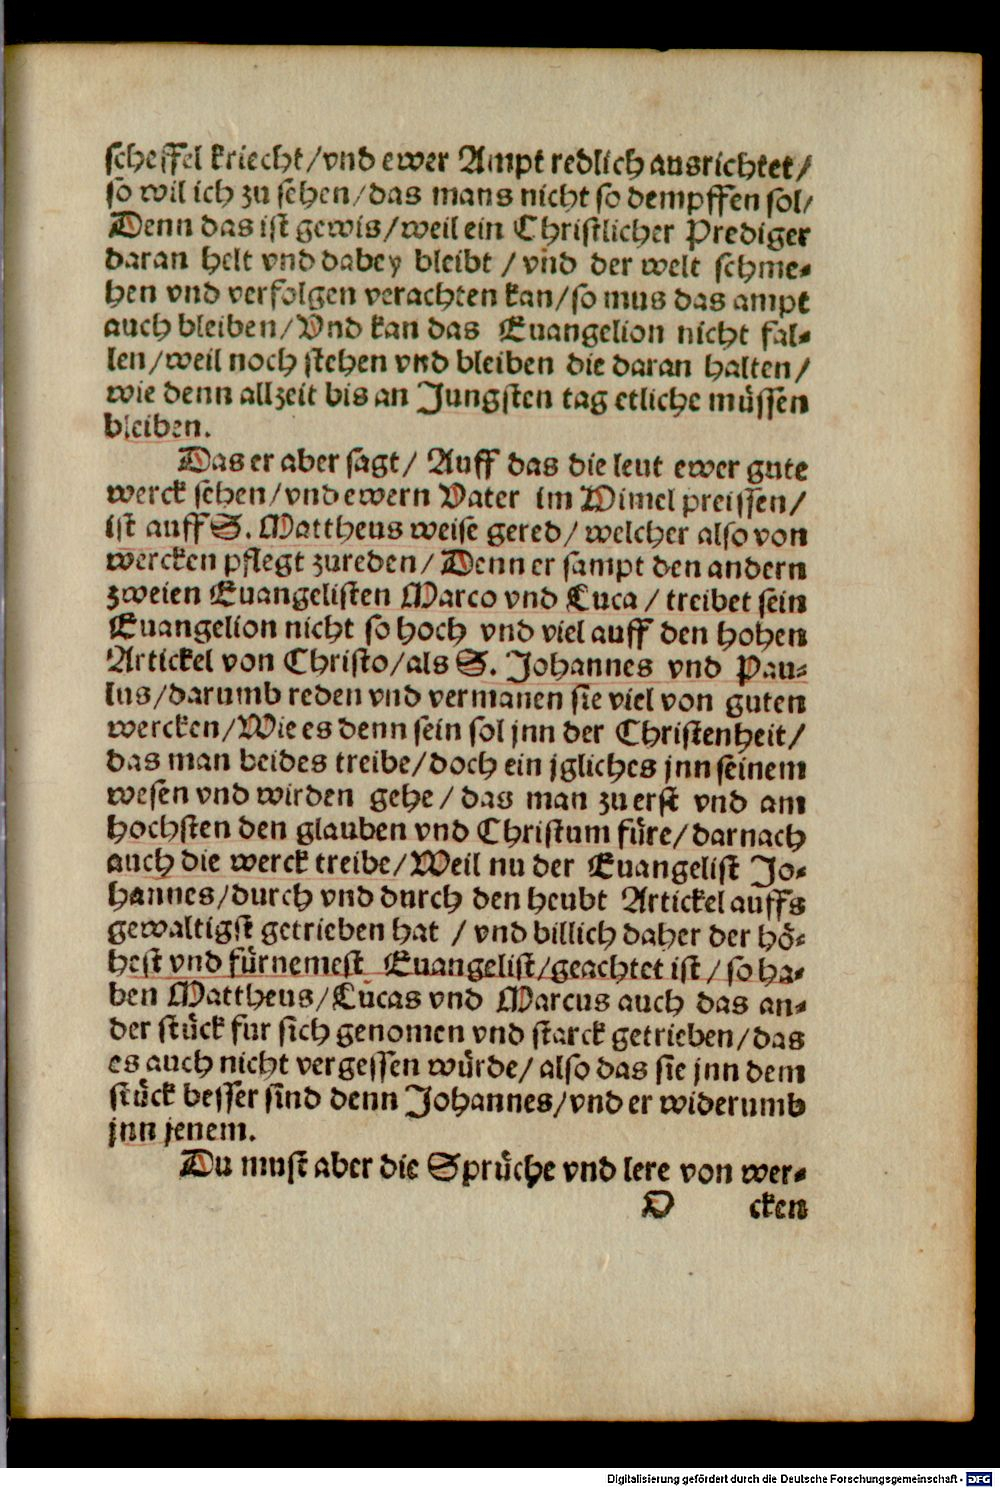 scheffel kriecht/vnd ewer Ampt redlich ausrichtet/
so wil ich zu sehen/das mans nicht so dempffen sol/
Denn das ist gewis/weil ein Christlicher Prediger
daran helt vnd dabey bleibt / vnd der welt schme-
hen vnd verfolgen verachten kan/so mus das ampt
auch bleiben/Vnd kan das Euangelion nicht fal-
len/weil noch stehen vnd bleiben die daran halten/
wie denn allzeit bis an Jungsten tag etliche müssen
bleiben.
Das er aber sagt/ Auff das die leut ewer gute
werck sehen/vnd ewern Vater im Himel preissen/
ist auff S. Mattheus weise gered/ welcher also von
wercken pflegt zureden/ Denn er sampt den andern
zweien Euangelisten Marco vnd Luca / treibet sein
Euangelion nicht so hoch vnd viel auff den hohen
Artickel von Christo/als S. Johannes vnd Pau-
lus/darumb reden vnd vermanen sie viel von guten
wercken/Wie es denn sein sol jnn der Christenheit/
das man beides treibe/doch ein jgliches jnn seinem
wesen vnd wirden gehe/ das man zu erst vnd am
hochsten den glauben vnd Christum füre/darnach
auch die werck treibe/Weil nu der Euangelist Jo-
hannes/durch vnd durch den heubt Artickel auffs
gewaltigst getrieben hat / vnd billich daher der hö-
hest vnd fürnemest Euangelist/geachtet ist/so ha-
ben Mattheus/Lucas vnd Marcus auch das an-
der stück fur sich genomen vnd starck getrieben/das
es auch nicht vergessen würde/ also das sie jnn dem
stück besser sind denn Johannes/vnd er widerumb
jnn jenem.
Du must aber die Sprüche vnd lere von wer-
D cken
Digitalisierung gefördert durch die Deutsche Forschungsgemeinschaft - DFG